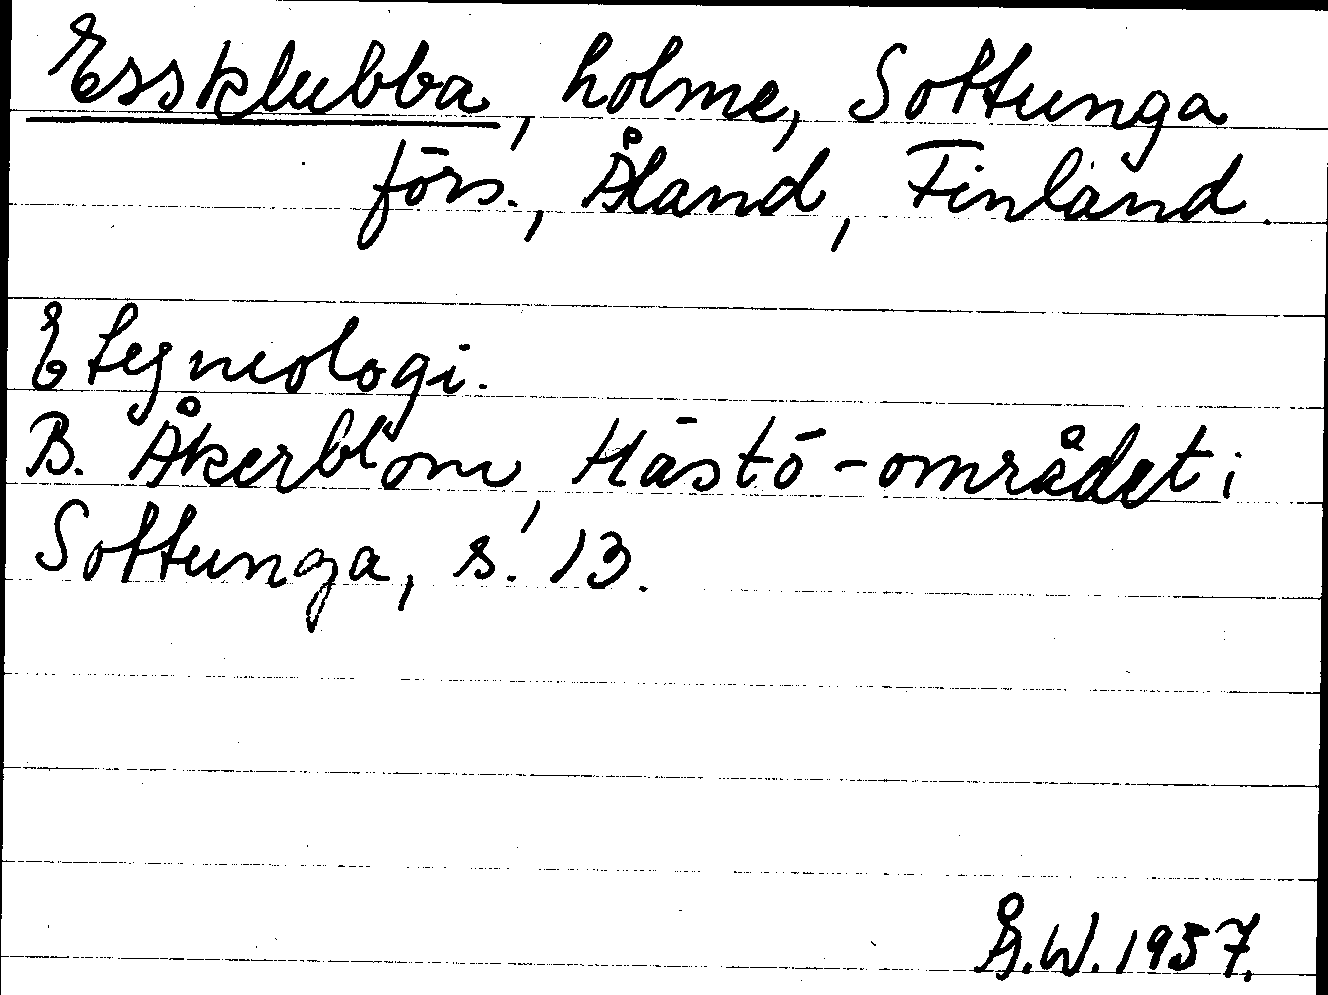 Essklubba, holme, Sottunga
förs., Åland, Finland.
Etymologi.
B. Åkerblom, Hästö-området i
Sottunga, s. 13.
Å.W. 1957.